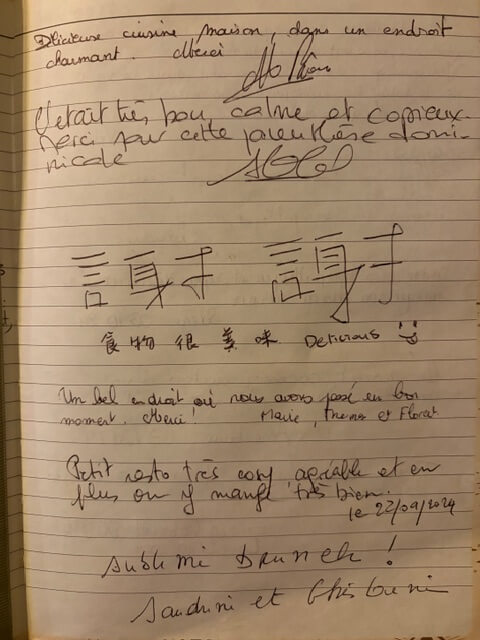 Délicieuse cuisine maison, dans un endroit
charmant. Merci
C'était très bon, calme et copieux.
Merci pour cette parenthèse domi-
nicale
謝 謝
食物 很 美味 Delicious
Un bel endroit où nous avons passé un bon
moment. Merci ! Marie, et
Petit resto très cosy, agréable et en
plus on y mange très bien.
le 22/09/2024
Sublime Brunch !
Sandrine et